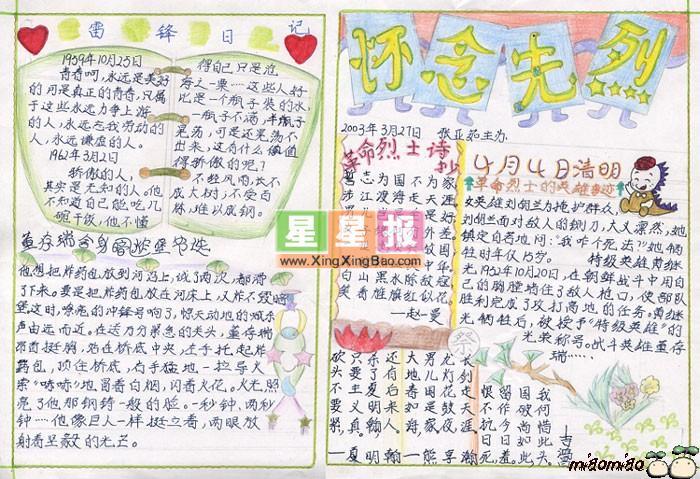 雷锋日记
1959年10月25日
青春呵,永远是美好
的可是真正的青春,只属
于这些永远力争上游
的人,永远忘我劳动的
人,永远谦虚的人。
1962年3月2日
骄傲的人,
其实是无知的人。他
不知道自己能吃几
碗干饭,他不懂
得自己只是沧
海之一粟……这些人好
比是一个瓶子装的水,
一瓶子不满,半瓶子
晃荡,可是还晃荡不
出来,这有什么值
得骄傲的呢?
不经风雨,长不
成大树,不受百
炼,难以成钢。
董存瑞舍身
他想把炸药包放到河沿上,试了两次,都滑
了下来。要是把炸药包放在河床上,又炸不毁暗
堡这时,嘹亮的冲锋号响了,惊天动地的喊杀
声由远而近。在这万分紧急的关头,董存瑞
昂首挺胸,站在桥底中央,左手托起炸
药包,顶住桥底,右手猛地一拉导火
索"哧哧"地冒着白烟,闪着火花。火光照
亮了他那钢铸一般的脸。一秒钟,两秒
钟……他像巨人一样挺立着,两眼放
射着坚毅的光芒。
怀念先烈
2003年3月27日 张亚茹主办
革命烈士诗抄
誓志为国不为家
涉江渡海走天涯
白山黑水除敌寇
笑看旌旗红似花
—赵一曼
4月4日清明
革命烈士的英雄事迹
女英雄刘胡兰为掩护群众,
刘胡兰面对敌人的铡刀,大义凛然,她
镇定自若地问:"我咋个死法?"她牺
牲时年仅15岁。
特级英雄黄继
光,1952年10月20日,在朝鲜战斗中用自
己的胸膛堵住了敌人枪口,使部队
胜利完成了攻打高地的任务,黄继
光牺牲后,被授予"特级英雄"的
光荣称号。战斗英雄董存
瑞……
砍头不要紧,
只要主义真
杀了夏明翰
还有后来人
—夏明翰
—熊亨瀚
恨不抗日死,
留作今日羞。
国破尚如此,
我何惜此头
星星报
www.XingXingBao.com
miaomiao